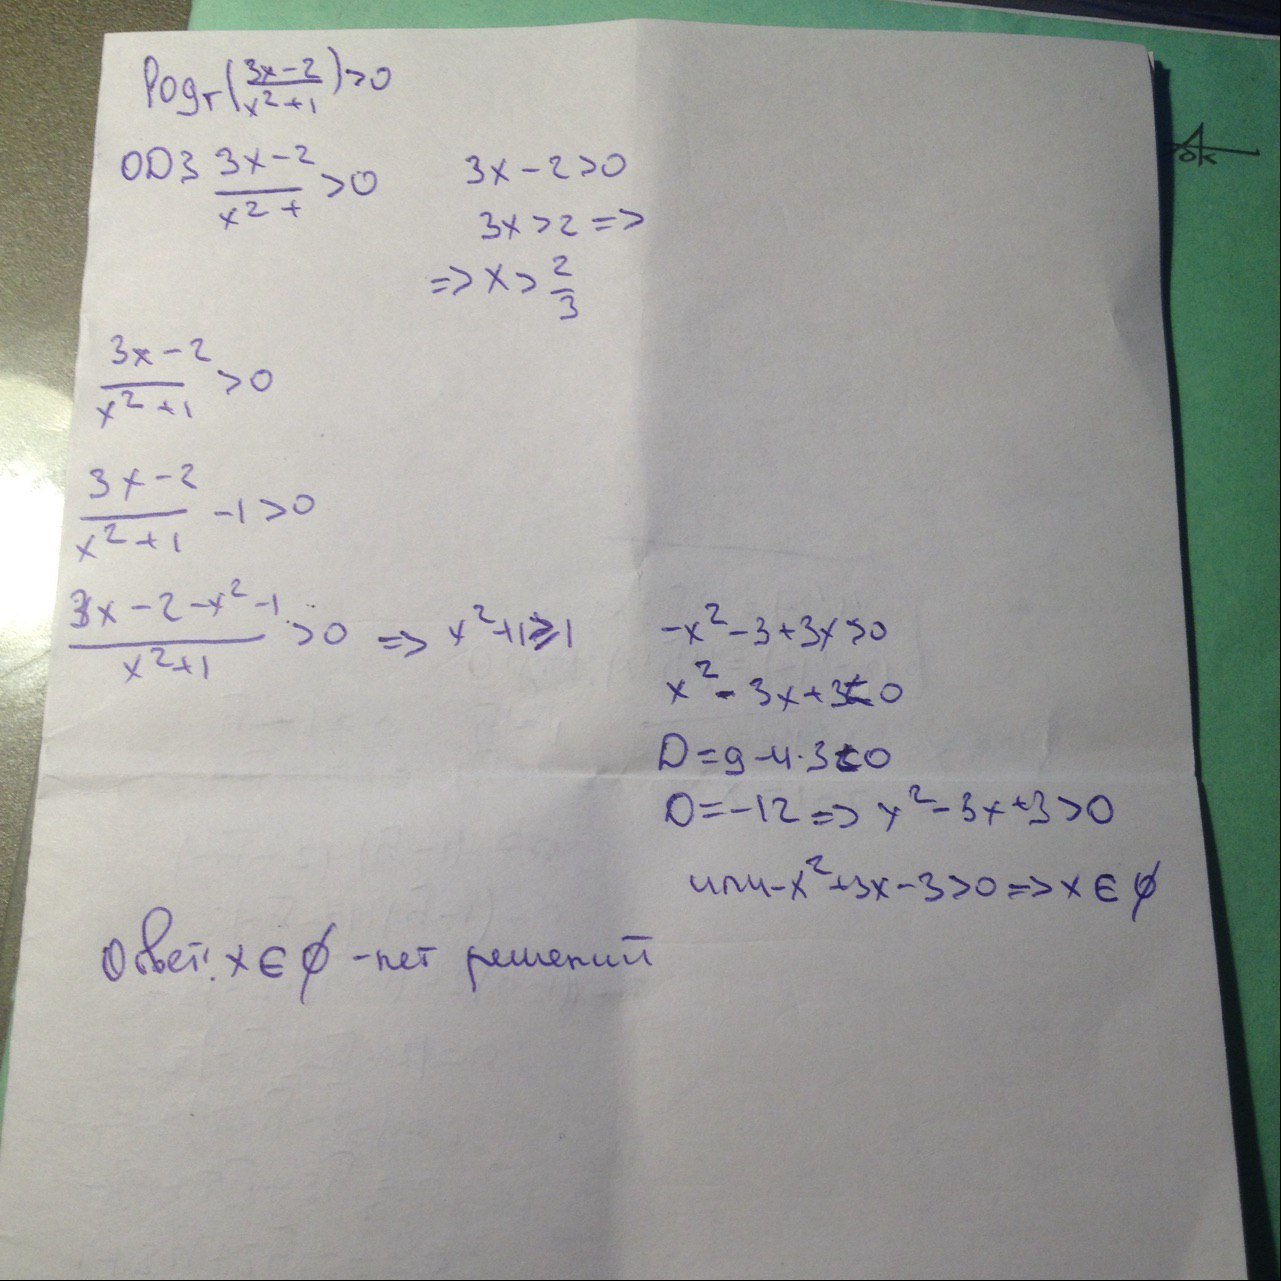 log₇(3x-2/x²+1)>0
ОDЗ 3x-2/x²+ >0
3x-2>0
3x>2 =>
=> x> 2/3
3x-2/x²+1 >0
3x-2/x²+1 -1>0
3x-2-x²-1/x²+1 >0 => x²+1≥1
-x²-3+3x>0
x²-3x+3<0
D=9-4·3<0
D=-12 => x²-3x+3>0
или -x²+3x-3>0 => x∈∅
Ответ: x∈∅ - нет решений
ok